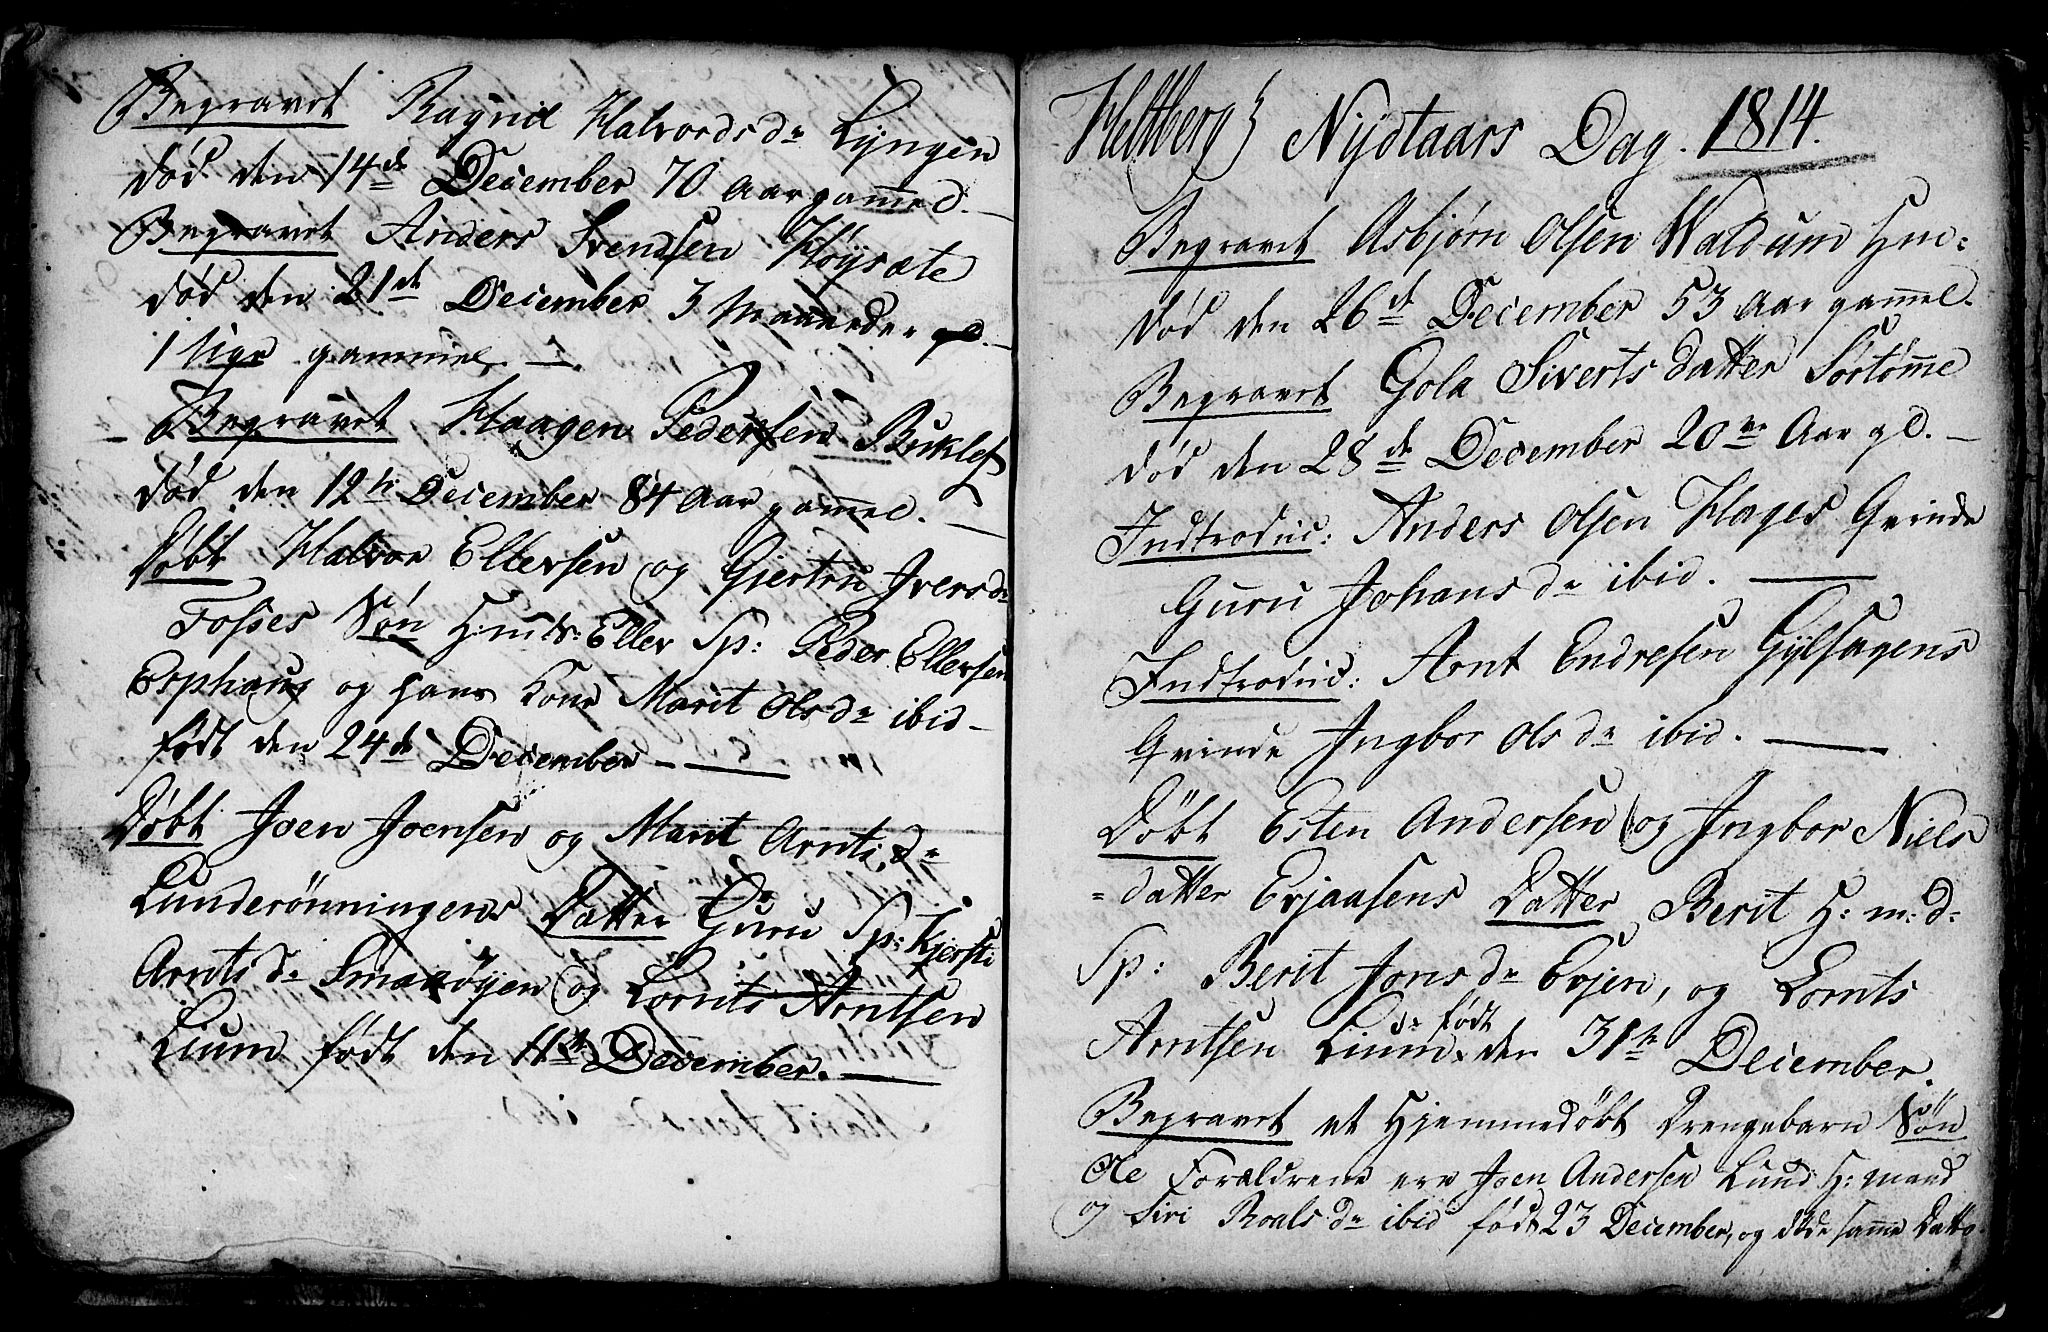 Begravet Ragnil Halvordsdr Lyngen
død den 14de December 70 Aar gam̅el. —
Begravet Anders Svendsen Höysæte
død den 21de December 3 Maaneder
1 Uge gammel —
Begravet Haagen Pedersen Buklef
død den 12te December 84 Aar gam̅el. —
Döbt Halvor Ellevsen og Gjertru Iversdr
Fosses Sön Hmds: Ellev Sp: Peder Ellevsen
Esphaug og hans Kone Marit Olsdr ibid —
født den 24de December — —
Döbt Joen Joensen og Marit Arntsdr
Lunderönningens Datter Guru Sp: Kjersti
Arntsdr Smaaöyen og Lornts Arntsen
Lium født den 11te December. —
Heltberg} Nytaars Dag. 1814.
Begravet Asbjørn Olsen Waldum Hm:
død den 26de December 53 Aar gam̅el.
Begravet Gola Sivertsdatter Sörtöm̅e
død den 28de December 20ve Aar gl. —
Indtroduc: Anders Olsen Hages Qvinde
Guru Johansdr ibid. —
Indtroduc: Arnt Endresen Gylhagens
Qvinde Ingbor Olsdr ibid. —
Döbt Esten Andersen og Ingbor Niels
=datter Evjaasens Datter Berit H: m: d:
Sp: Berit Jonsdr Evjen, og Lornts
Arntsen Lium. født den 31te December.
Begravet et Hjemmedøbt Drengebarn Sön
Ole Forældrene ere Joen Andersen Lund H: mand
og Siri Roalsdr ibid født 23 December, og døde samme Datto.